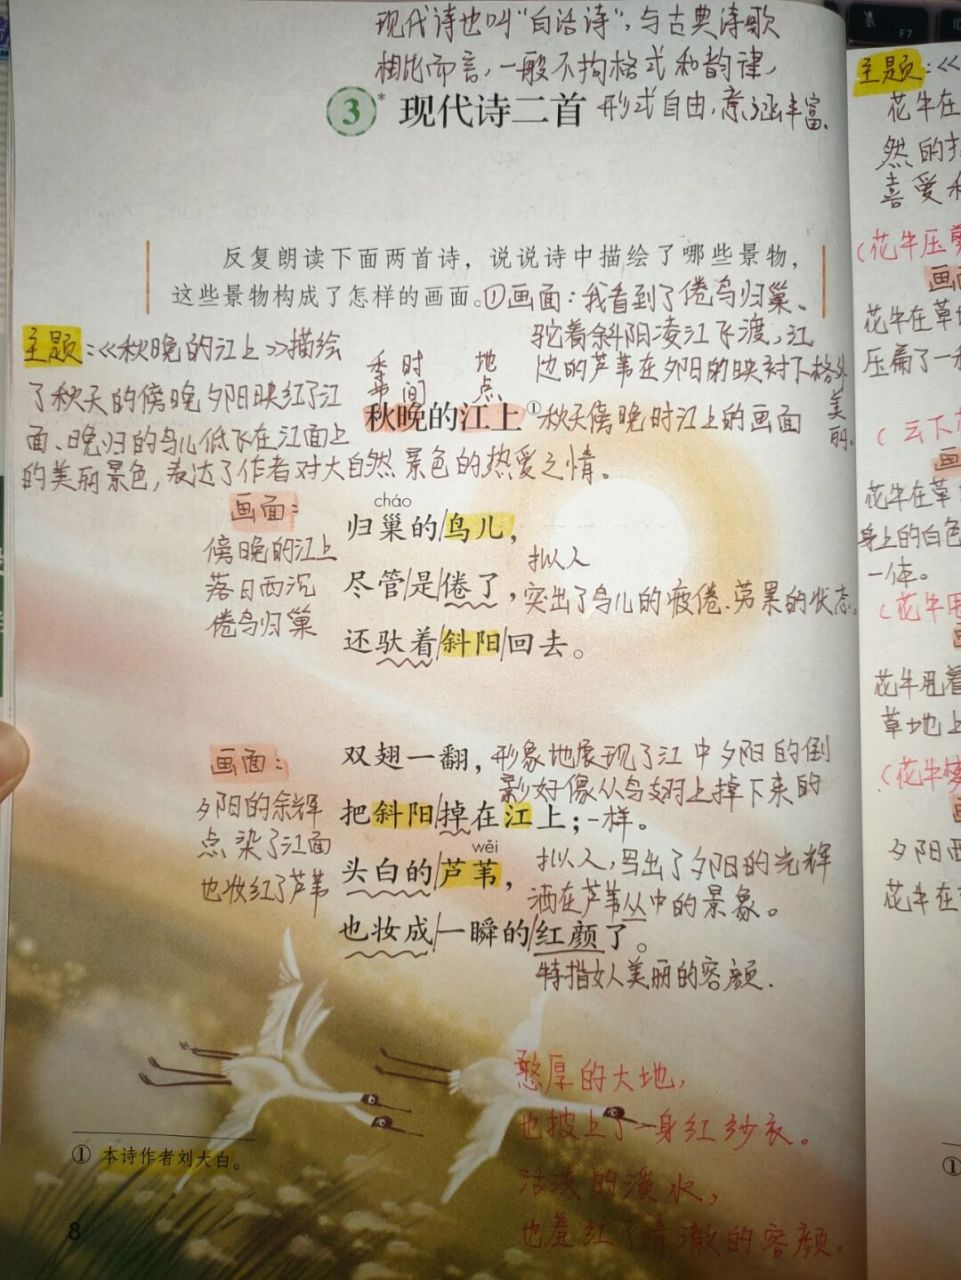 现代诗也叫"白话诗",与古典诗歌
相比而言,一般不拘格式和韵律,
3* 现代诗二首 形式自由,意涵丰富.
反复朗读下面两首诗，说说诗中描绘了哪些景物，
这些景物构成了怎样的画面。①画面:我看到了倦鸟归巢、
驼着斜阳凌江飞渡,江
边的芦苇在夕阳的映衬下格外
美丽.
主题:《秋晚的江上》描绘
了秋天的傍晚夕阳映红了江
面、晚归的鸟儿低飞在江面上
的美丽景色,表达了作者对大自然景色的热爱之情。
季节 时间 地点
秋晚的江上① 秋天傍晚时江上的画面
画面:
傍晚的江上
落日西沉
倦鸟归巢
cháo
归巢的/鸟儿，
尽管/是/倦了，
拟人
突出了鸟儿的疲倦、劳累的状态。
还驮着/斜阳/回去。
画面:
夕阳的余辉
点染了江面
也妆红了芦苇
双翅一翻，
形象地展现了江中夕阳的倒
影好像从鸟翅上掉下来的
一样。
把斜阳/掉在江上；
wěi
头白的/芦苇，
拟人,写出了夕阳的光辉
洒在芦苇丛中的景象。
也妆成/一瞬的/红颜了。
特指女人美丽的容颜.
憨厚的大地,
也披上了一身红纱衣。
活泼的溪水,
也羞红了清澈的容颜.
① 本诗作者刘大白。
8
F7
主题:《
花牛在
然的
喜爱
(花牛压
画面
花牛在草
压扁了一
(云下
画
花牛在草
身上的白色
一体。
(花牛甩
花牛甩着
草地上
(花牛
夕阳西
花牛在
①